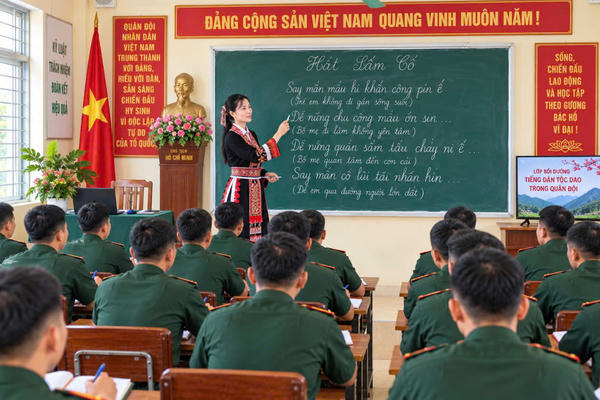 ĐẢNG CỘNG SẢN VIỆT NAM QUANG VINH MUÔN NĂM!
KỶ LUẬT
TRÁCH NHIỆM
ĐOÀN KẾT
HIỆU QUẢ
QUÂN ĐỘI
NHÂN DÂN
VIỆT NAM
TRUNG THÀNH
VỚI ĐẢNG,
HIẾU VỚI DÂN,
SẴN SÀNG
CHIẾN ĐẤU
HY SINH
VÌ ĐỘC LẬP
TỰ DO
CỦA TỔ QUỐC
HỒ CHÍ MINH
Hát Lấm Cố
Say măn mẩu hi khăn công pin ế
(Trẻ em không đi gần sông suối)
Dế nừng chu công mấu ớn sin ...
(Bố mẹ đi làm không yên tâm)
Dế nừng quân săm tấu chảy ni ế ...
(Bố mẹ quan tâm đến con cái)
Say măn cố lủi tải nhấn hin
(Để em qua đường người lớn dắt)
SỐNG,
CHIẾN ĐẤU
LAO ĐỘNG
VÀ HỌC
TẬP THEO
GƯƠNG
BÁC HỒ
VĨ ĐẠI!
LỚP BỒI DƯỠNG
TIẾNG DÂN TỘC DAO
TRONG QUÂN ĐỘI